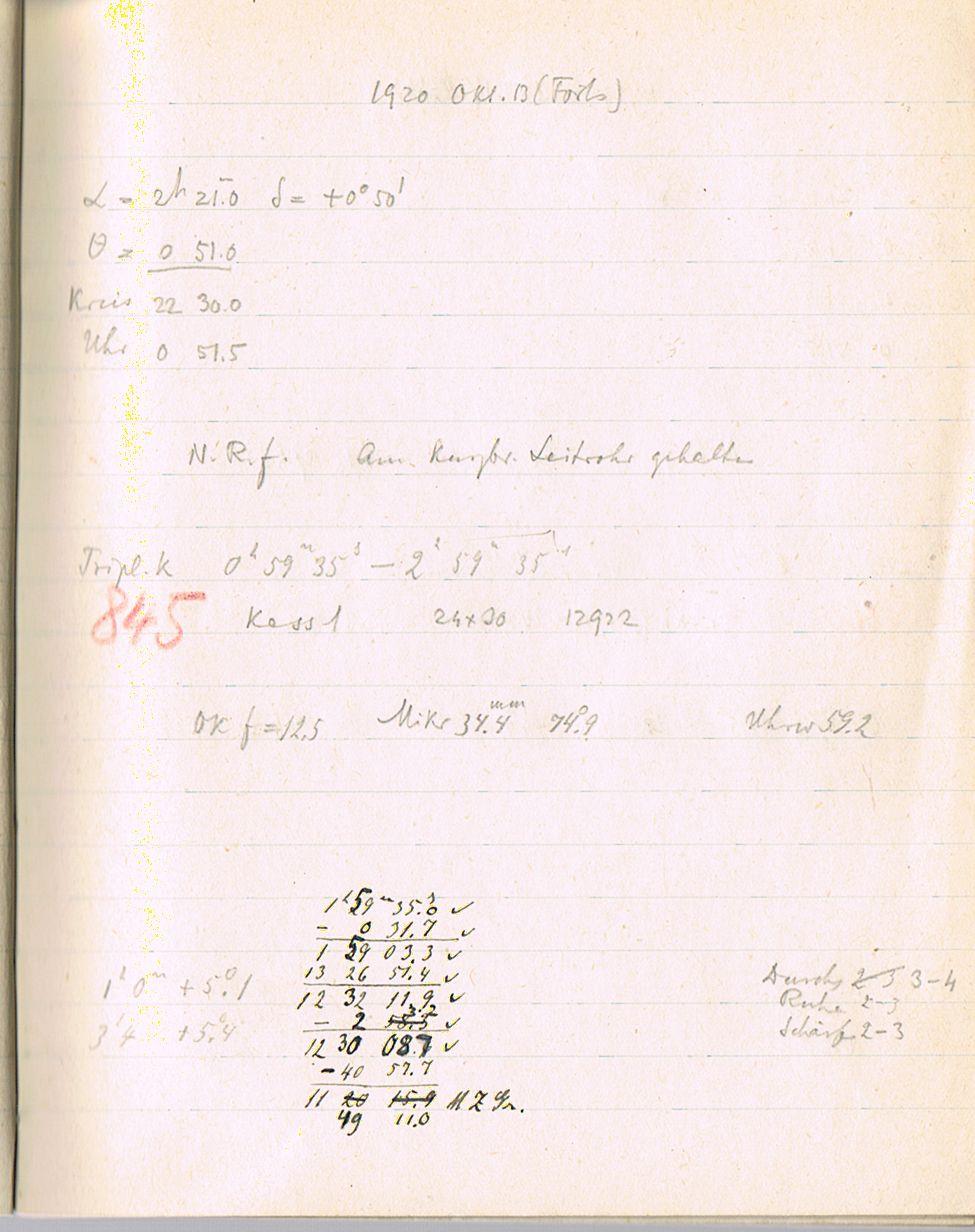 1920 Okt. 13 (Forts)
α = 2h 21m.0 δ = +0° 50'
θ = 0 51.0
Kreis 22 30.0
Uhr 0 51.5
N.R.f. Am Leitrohr gehalten
Tripl. K 0h 59m 35s – 2h 59m 35s
845 Kass 1 24×30 12922
OK f = 12.5 Mikr 34.4mm 74°.9 Uhrw 59.2
1h 59m 35.0s ✓
– 0 31.7 ✓
1 59 03.3 ✓
13 26 51.4 ✓
12 32 11.9 ✓
– 2 3.2 ✓
12 30 08.7 ✓
– 40 57.7
11 20 15.9 M Z Gr.
49 11.0
1h 0m +5°.1
3h 4 +5°.4
Durchs 2-3 3-4
Ruhe 2-3
Schärfe 2-3